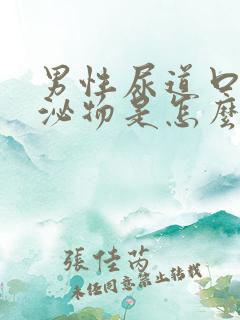 男性尿道口
泌物是怎麼
張佳芮
未經同意禁止轉載